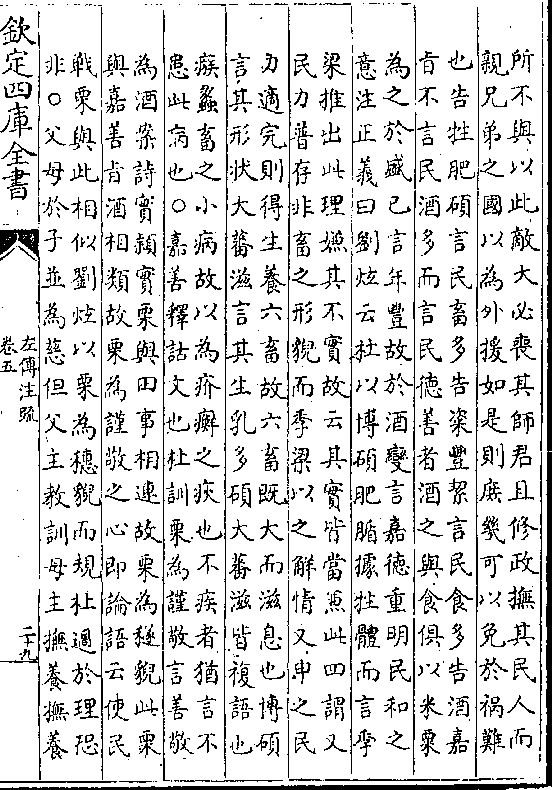 所不與以此敵大必喪其師君且修政撫其民人而
親兄弟之國以為外援如是則庶幾可以免於禍難
也告牲肥碩言民畜多告粢豐絜言民食多告酒嘉
㫖不言民酒多而言民德善者酒之與食俱以米粟
為之於盛已言年豐故於酒變言嘉德重明民和之
意注正義曰劉炫云杜以博碩肥腯據牲體而言季
梁推出此理嫌其不實故云其實皆當兼此四謂又
民力普存非畜之形貌而季梁以之解情又申之民
力適完則得生養六畜故六畜既大而滋息也博碩
言其形狀大蕃滋言其生乳多碩大蕃滋皆複語也
瘯蠡畜之小病故以為疥癬之疾也不疾者猶言不
患此病也○嘉善釋詁文也杜訓栗為謹敬言善敬
為酒案詩實穎實栗與田事相連故栗為穟貌此栗
與嘉善㫖酒相類故栗為謹敬之心即論語云使民
戰栗與此相似劉炫以栗為穗貌而規杜過於理恐
非○父母於子並為慈但父主教訓母主撫養撫養
欽定四庫全書
左傳注疏
卷五
二十九